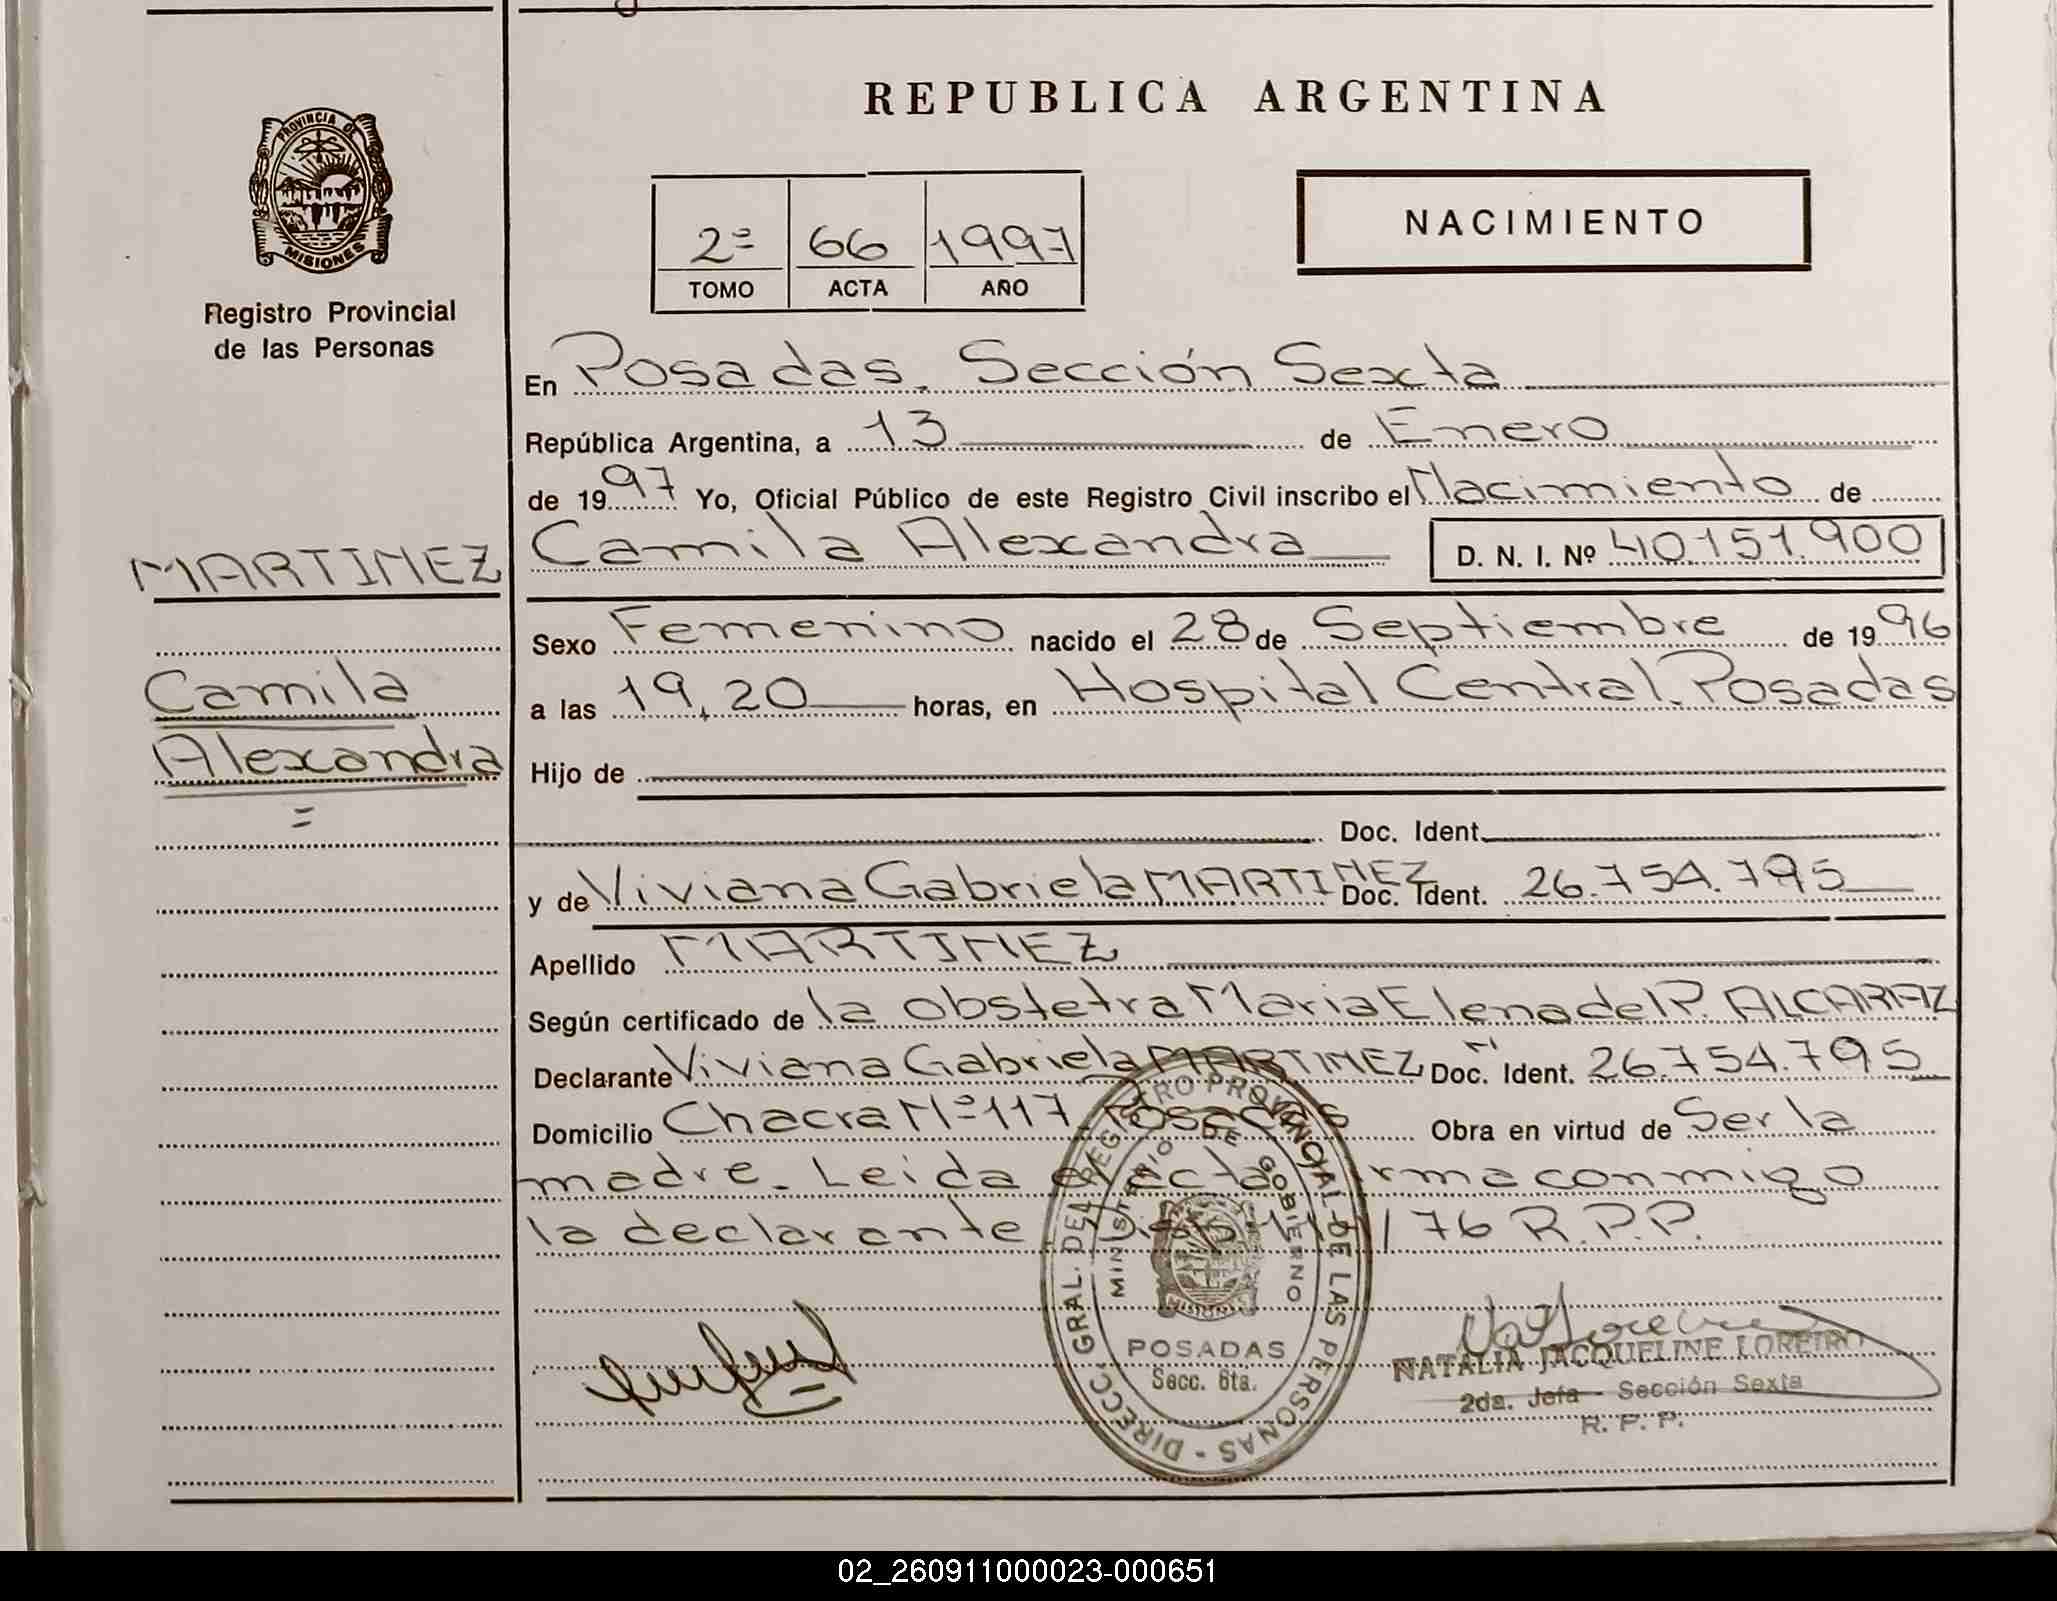 REPUBLICA ARGENTINA
PROVINCIA DE
MISIONES
Registro Provincial
de las Personas
2º 66 1997
TOMO ACTA AÑO
NACIMIENTO
En Posadas. Sección Sexta
República Argentina, a 13 de Enero
de 1997 Yo, Oficial Público de este Registro Civil inscribo el Nacimiento de
MARTINEZ
Camila Alexandra D. N. I. Nº 40.151.900
Sexo Femenino nacido el 28 de Septiembre de 1996
Camila
a las 19,20 horas, en Hospital Central. Posadas
Alexandra
Hijo de
Doc. Ident.
y de Viviana Gabriela MARTINEZ Doc. Ident. 26.754.795
Apellido MARTINEZ
Según certificado de la obstetra Maria Elena del R. ALCARAZ
Declarante Viviana Gabriela MARTINEZ Doc. Ident. 26.754.795
Domicilio Chacra Nº 117. Posadas Obra en virtud de Ser la
madre. Leida el acta firma conmigo
la declarante 176 R.P.P.
DIRECC. GRAL. DEL REGISTRO PROVINCIAL DE LAS PERSONAS -
MINISTERIO DE GOBIERNO
MISIONES
POSADAS
Secc. 6ta.
NATALIA JACQUELINE LOREIRO
2da. Jefa - Sección Sexta
R. P. P.
02_260911000023-000651